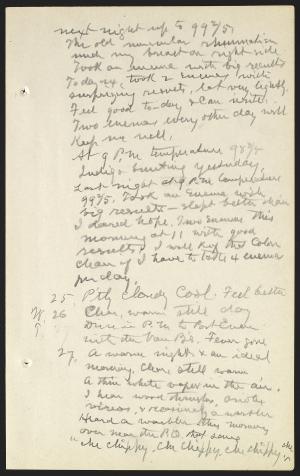 next night up to 99 2/5.
The old muscular rheumatism
under my breast on right side
Took an enema with big results
To-day 24, took 2 enemas with
surprizing results, eat very lightly.
Feel good to-day & can write.
Two enemas every other day will
Keep me well.
At 9 P.M. temperature 98
Indigo Bunting yesterday.
Last night at 9 P.M. temperature
99 2/5. Took an Enema with
big results — slept better than
I dared hope. Two enemas this
morning at 11 with good
results. I will keep this Colon
clean if I have to take 4 enemas
per day.
25, Ptly Cloudy Cool. Feel better
26 Clear, warm still day
Drive in P.M. to
with the Van B's. Fever gone
27, A warm night & an ideal
morning, clear still warm
A thin white vapor in the air.
I hear wood thrushes, orioles
vireos, & occasionally a warbler
Heard a warbler this morning
over near the P.O. that sang
"che chippy, che chippy, che chippy che